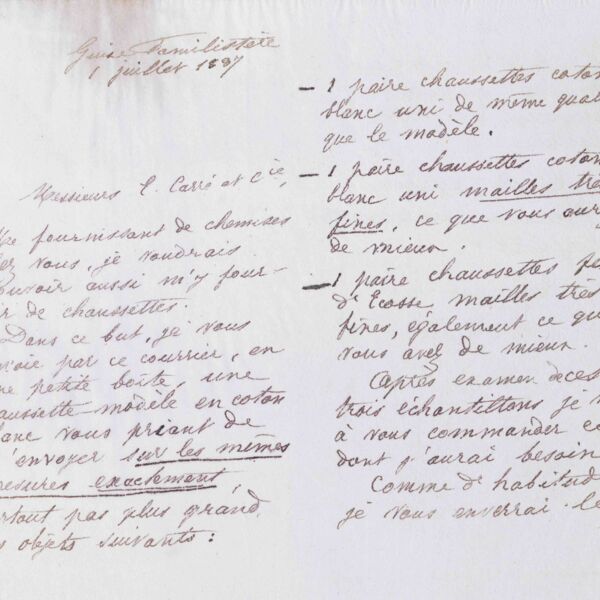 Guise Familistère
1 juillet 1887
Messieurs C. Carré et Cie,
Me fournissant de chemises
chez vous, je voudrais
pouvoir aussi m'y four-
nir de chaussettes.
Dans ce but, je vous
envoie par ce courrier, en
une petite boîte, une
chaussette modèle en coton
blanc vous priant de
m'envoyer sur les mêmes
mesures exactement,
surtout pas plus grand,
les objets suivants :
– 1 paire chaussettes coton
blanc uni de même qual
que le modèle.
– 1 paire chaussettes coton
blanc uni mailles trè
fines, ce que vous aur
de mieux.
– 1 paire chaussettes fi
d'Ecosse mailles très
fines, également ce qu
vous avez de mieux.
Après examen de ces
trois échantillons je
à vous commander ce
dont j'aurai besoin
Comme d'habitud
je vous enverrai le